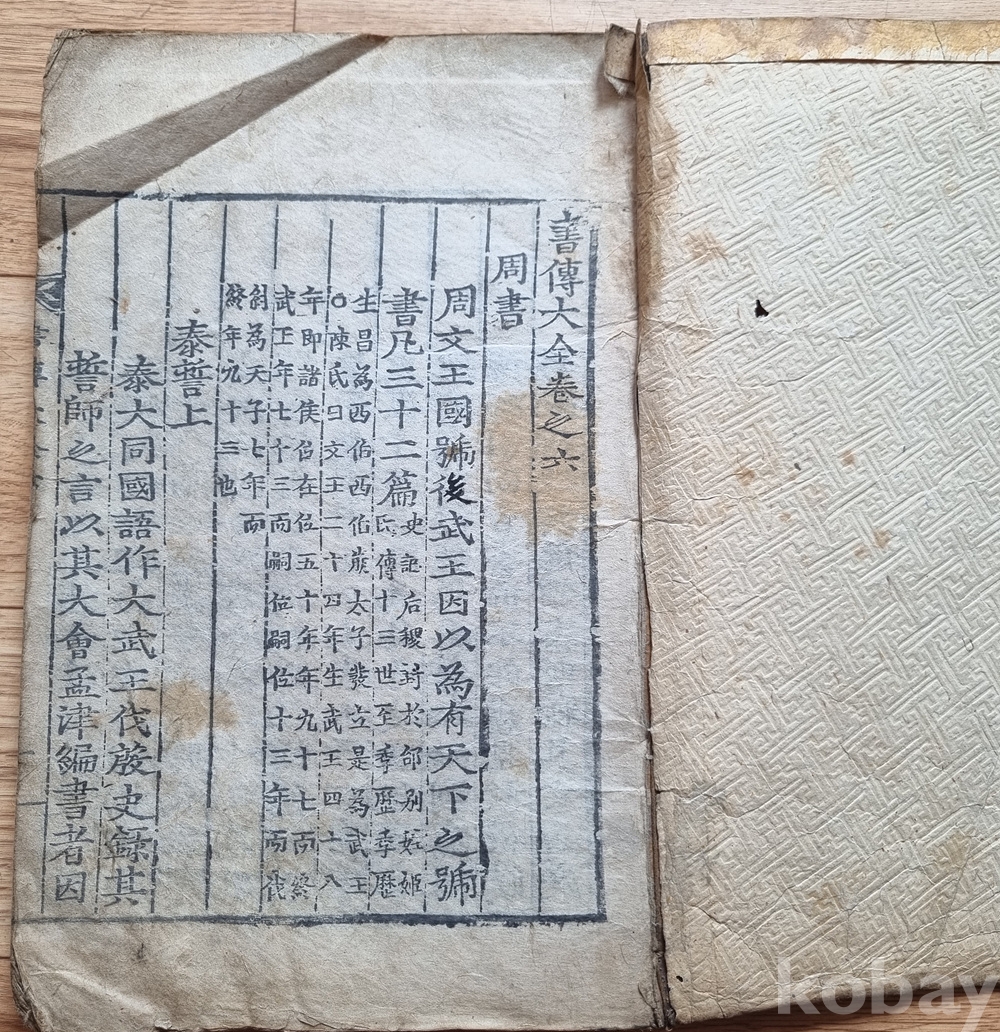 書傳大全卷之六
周書
周文王國號後武王因以為有天下之號
書凡三十二篇
史記后稷封於邰別姓姬
氏傳十三世至季歷季歷
生昌為西伯西伯崩太子發立是為武王
○陳氏曰文王二十四年生武王四十八
年即諸侯位在位五十年年九十七而終
武王年七十三而嗣位嗣位十三年而伐
紂為天子七年而
終年九十三也
泰誓上
泰大同國語作大武王伐殷史錄其
誓師之言以其大會孟津編書者因
kobay